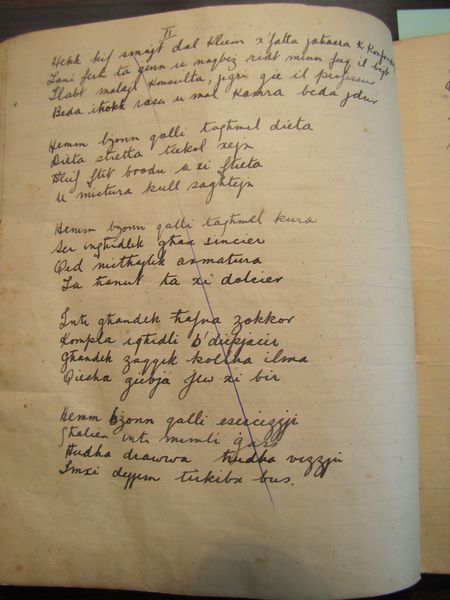 II
Hekk kif smajt dal kliem x'falta jahasra
Lani ferh ta qum u naqbez ridt minn fuq il
Tlabt malajr konsulta, jigri gie il professur
Beda ihokk rasu u mal kamra beda jdur
Hemm bzonn qalli taghmel dieta
Dieta stretta tiekol xejn
Hlief ftit brodu u xi ftieta
U mistura kull saghtejn
Hemm bzonn qalli taghmel kura
Ser inghidlek ghax sincier
Qed nisthajlek armatura
Ta hanut ta xi dolcier
Inti ghandek hafna zokkor
Kompla ighidli b'dispjacir
Ghandek zaqqek kollha ilma
Qiesha giebja jew xi bir
Hemm bzonn qalli esercizzji
Ghaliex inti mimli gass
Hudha drawwa hudha vizzju
Imxi dejjem tirkibx bus.